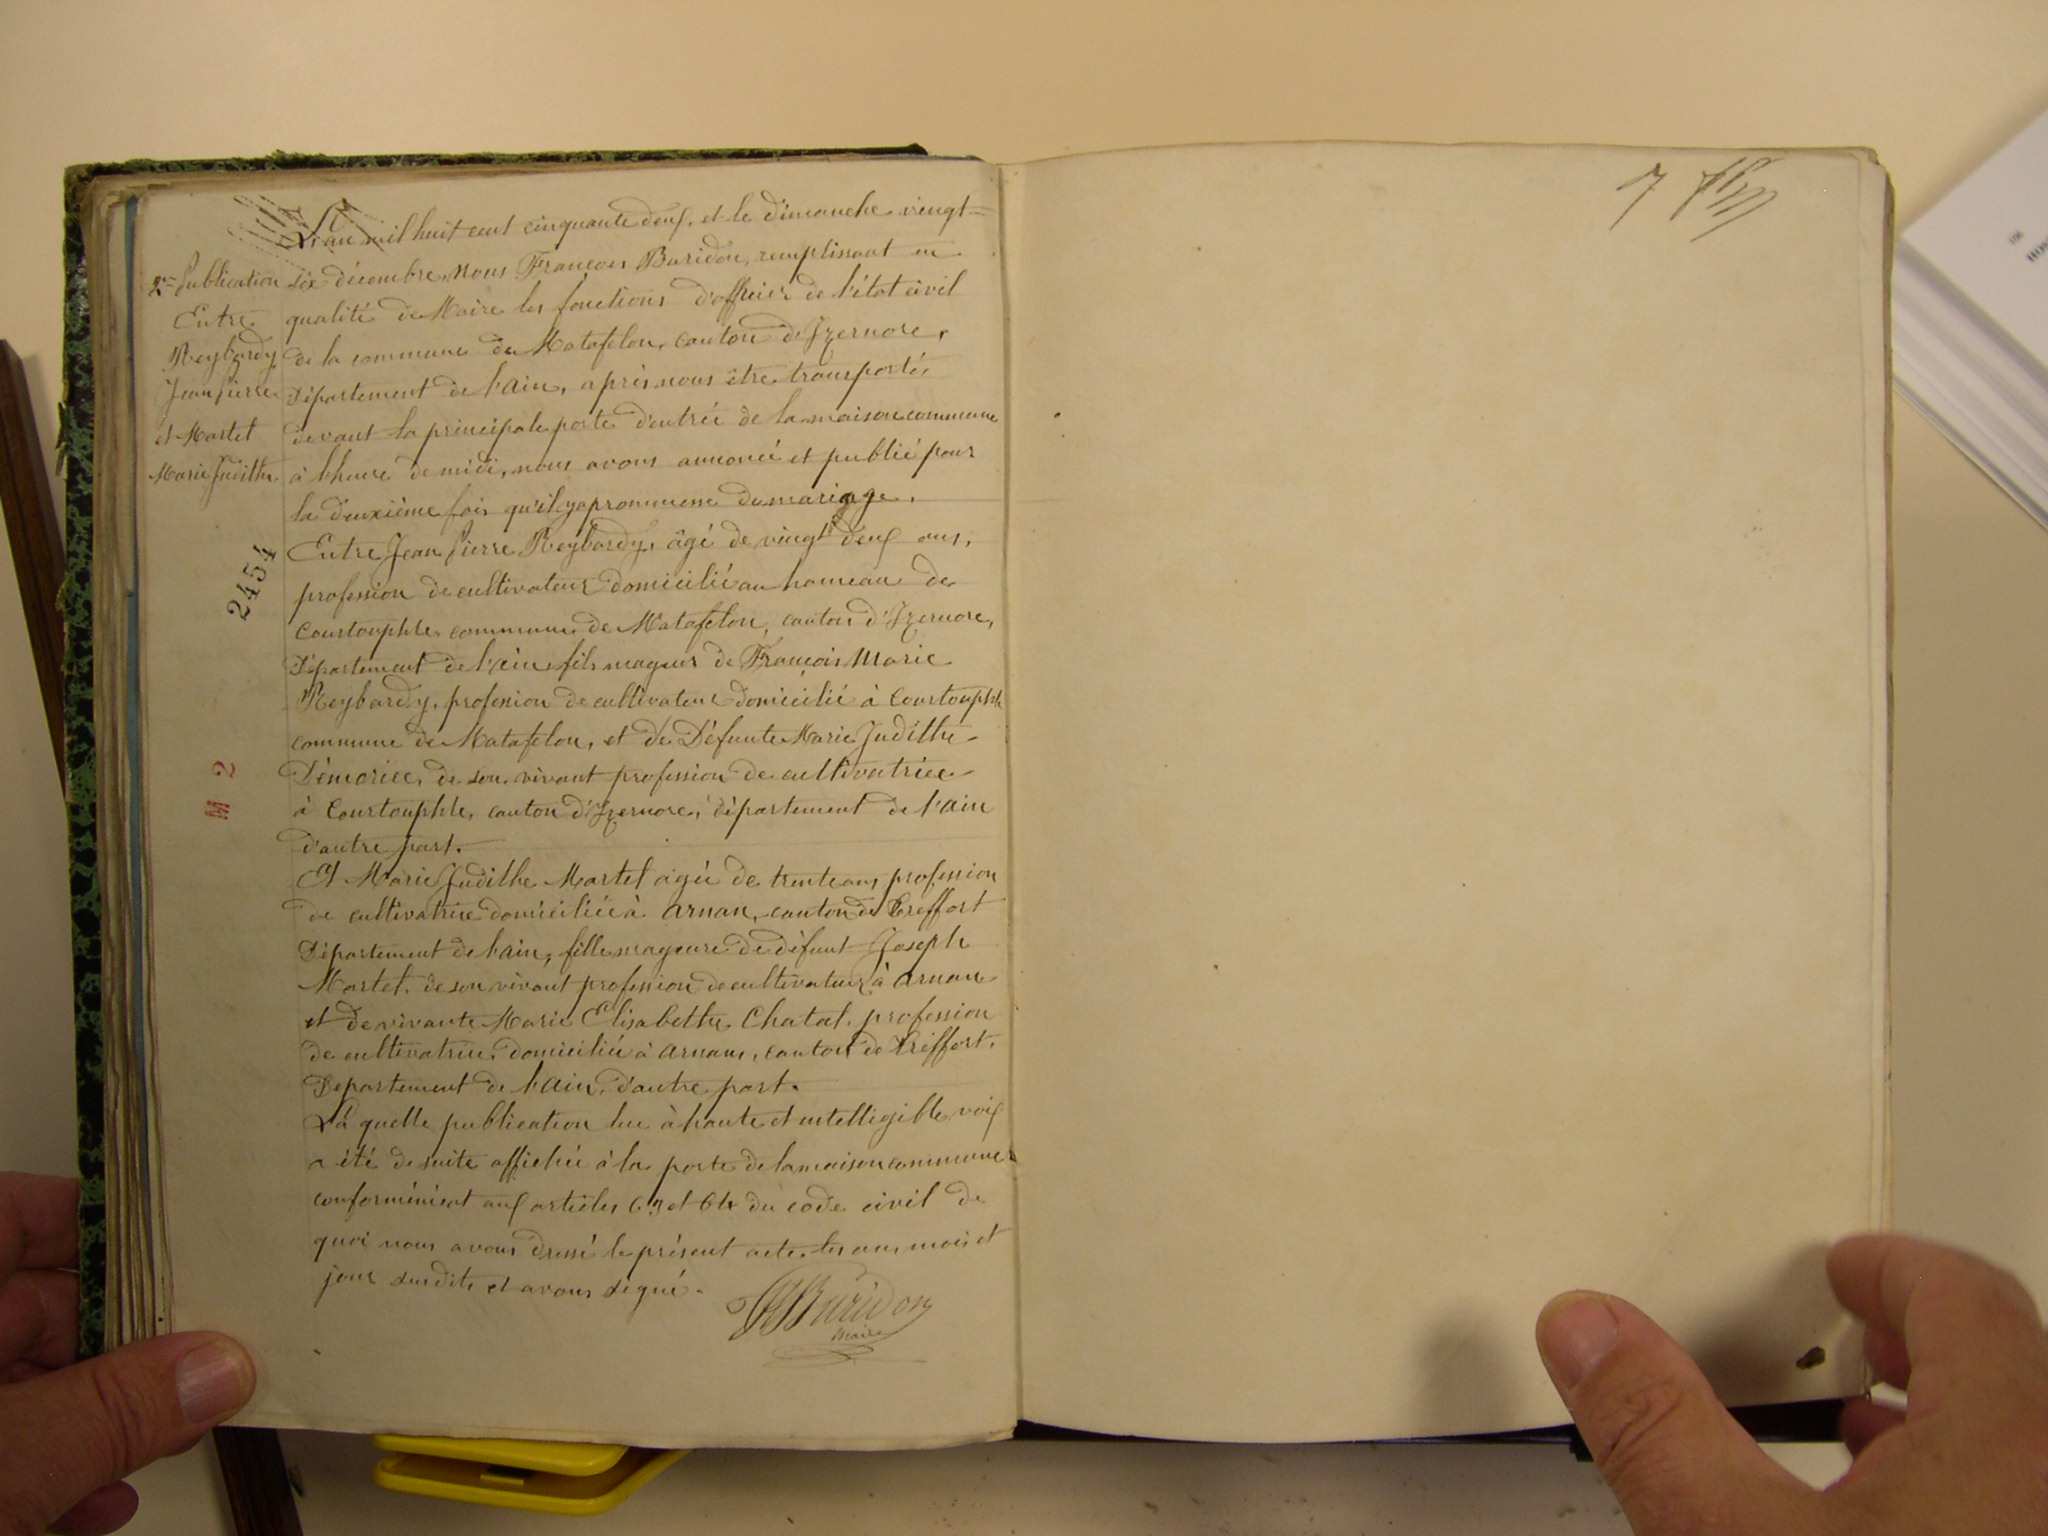 2me Publication
Entre
Reybardy
Jean Pierre
et Martel
Marie Judithe
2454
L'an mil huit cent cinquante deux, et le dimanche vingt=
six décembre, nous François Buridon, remplissant en
qualité de Maire les fonctions d'officier de l'état civil
de la commune de Matafelon, canton d'Izernore,
Département de l'ain, après nous être transporté,
devant la principale porte d'entrée de la maison commune
à l'heure de midi, nous avons annoncé et publié pour
la deuxième fois qu'il y a promesse de mariage.
Entre Jean Pierre Reybardy, âgé de vingt deux ans,
profession de cultivateur domicilié au hameau de
Courtouphle, commune de Matafelon, canton d'Izernore,
Département de l'ain, fils mageur de François Marie
Reybardy, profession de cultivateur domicilié à Courtouphle
commune de Matafelon, et de Défunte Marie Judithe
de son vivant profession de cultivatrice
à Courtouphle, canton d'Izernore, département de l'ain
d'autre part.
Et Marie Judithe Martel agée de trente ans, profession
de cultivatrice domiciliée à arnan, canton de Treffort
Département de l'ain, fille mageure de défunt Joseph
Martel, de son vivant profession de cultivateur à arnan
et de vivante Marie Elisabethe Chatal, profession
de cultivatrice, domiciliée à arnans, canton de Treffort,
Departement de l'ain, d'autre part.
La quelle publication lue à haute et intelligible voix
a été de suite affichée à la porte de la maison commune
conformément aux articles 63 et 64 du code civil de
quoi nous avons dressé le présent acte, les an, mois et
jour susdits et avons signé.
Buridon
maire
2
7